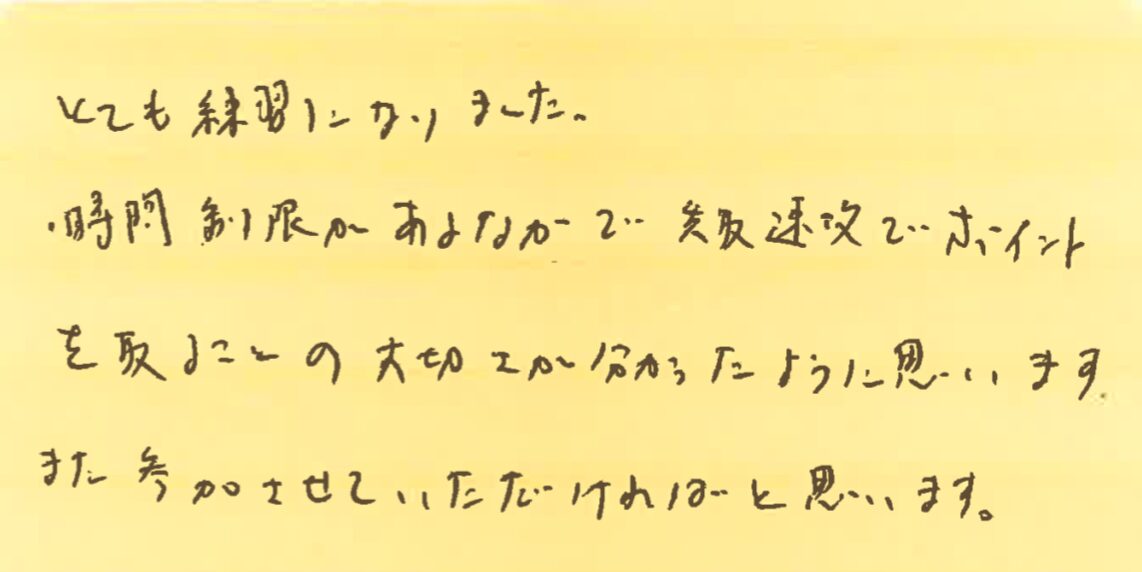 とても練習になりました。
・時間制限があるなかで 先取速攻でポイント
を取ることの大切さが分かったように思います
また参加させていただければと思います。